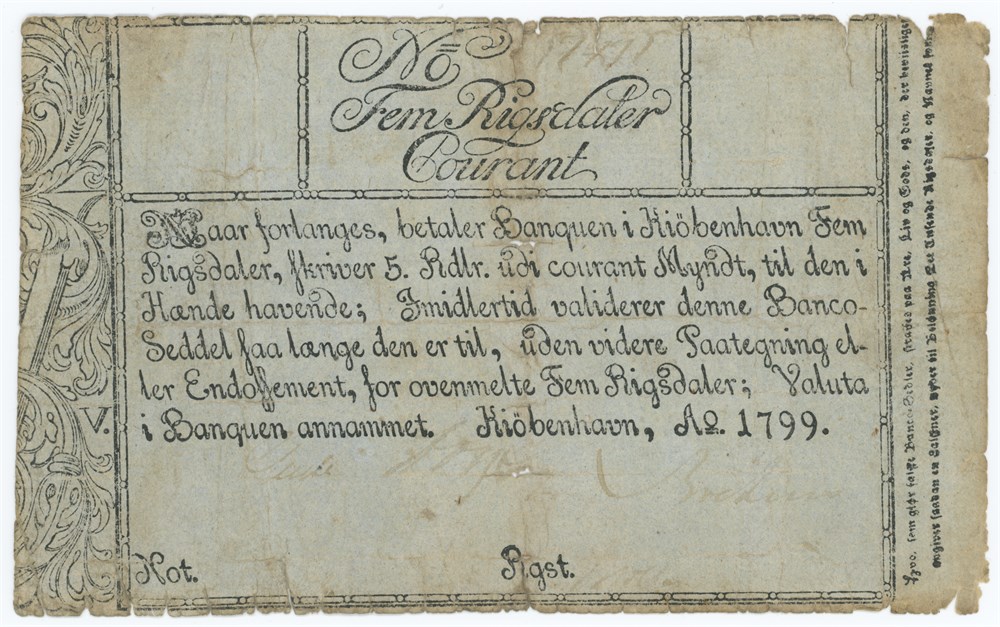 No
Fem Rigsdaler
Courant
Naar forlanges, betaler Banquen i Kiöbenhavn Fem
Rigsdaler, skriver 5. Rdlr. udi courant Myndt, til den i
Hænde havende; Imidlertid validerer denne Banco-
Seddel saa længe den er til, uden videre Paategning el-
ler Endossement, for ovenmelte Fem Rigsdaler; Valuta
i Banquen annammet. Kiöbenhavn, Ao. 1799.
V.
Not. Rgst.
Hvo, som giør falske Banco-Sedler, straffes paa Ære, Liv og Gods, og den, der beviislig
angiver saadan en Falskner, nyder til Belønning Ti Tusende Rigsdaler, og Navnet